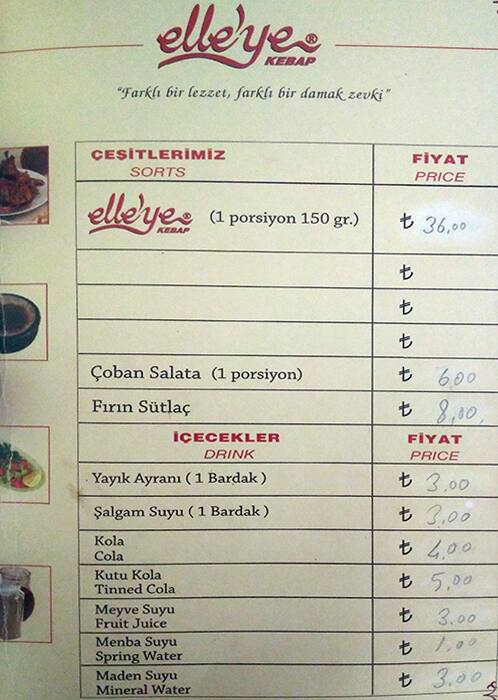 elle'ye®
KEBAP
"Farklı bir lezzet, farklı bir damak zevki"
ÇEŞİTLERİMİZ FİYAT
SORTS PRICE
elle'ye® KEBAP (1 porsiyon 150 gr.) ₺ 36,00
₺
₺
₺
Çoban Salata (1 porsiyon) ₺ 6.00
Fırın Sütlaç ₺ 8,00,
İÇECEKLER FİYAT
DRINK PRICE
Yayık Ayranı ( 1 Bardak ) ₺ 3.00
Şalgam Suyu ( 1 Bardak ) ₺ 3,00
Kola ₺ 4,00
Cola
Kutu Kola ₺ 5,00
Tinned Cola
Meyve Suyu ₺ 3.00
Fruit Juice
Menba Suyu ₺ 1.00
Spring Water
Maden Suyu ₺ 3.00
Mineral Water